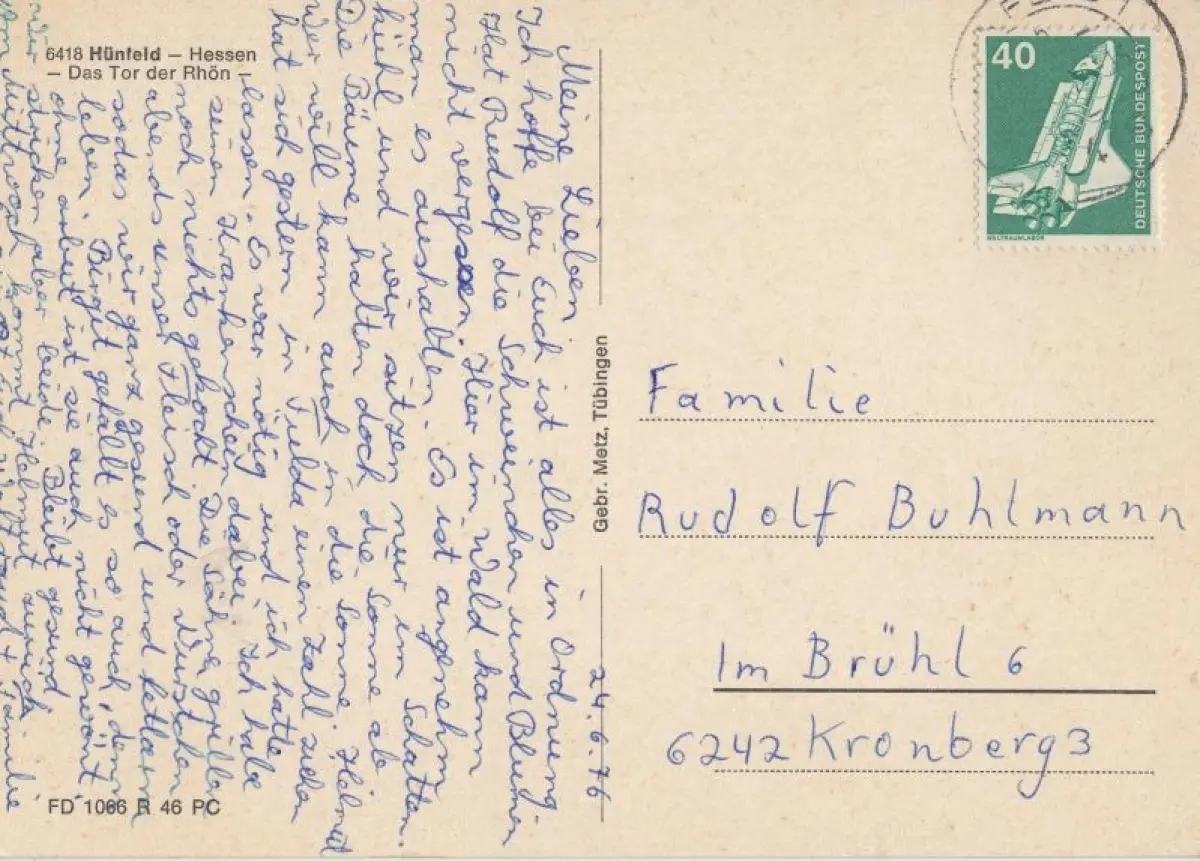 6418 Hünfeld – Hessen
– Das Tor der Rhön –
24.6.76
Meine Lieben
Ich hoffe bei Euch ist alles in Ordnung
Hat Rudolf die Schweinchen und Blumen
nicht vergessen. Hier im Wald kann
man es aushalten. Es ist angenehm
kühl und wir sitzen nur im Schatten.
Die Bäume halten doch die Sonne ab
Wer will kann auch in die Sonne. Helmut
hat sich gestern in Fulda einen Zahl ziehen
lassen. Es war nötig und ich hatte
seinen Krankenschein dabei. Ich habe
noch nichts gekocht. Die Söhne grillen
abends unser Fleisch oder Würstchen
sodas wir ganz gesund und fettarm
leben. Birgit gefällt es so auch, denn
ohne arbeit ist sie auch nicht gewönt
Wir stricken aber beide. Bleibt gesund
Am Mittwoch kommt Helmut zurück
Familie
FD 1066 R 46 PC
Gebr. Metz, Tübingen
40
DEUTSCHE BUNDESPOST
WELTRAUMLABOR
Familie
Rudolf Buhlmann
Im Brühl 6
6242 Kronberg 3